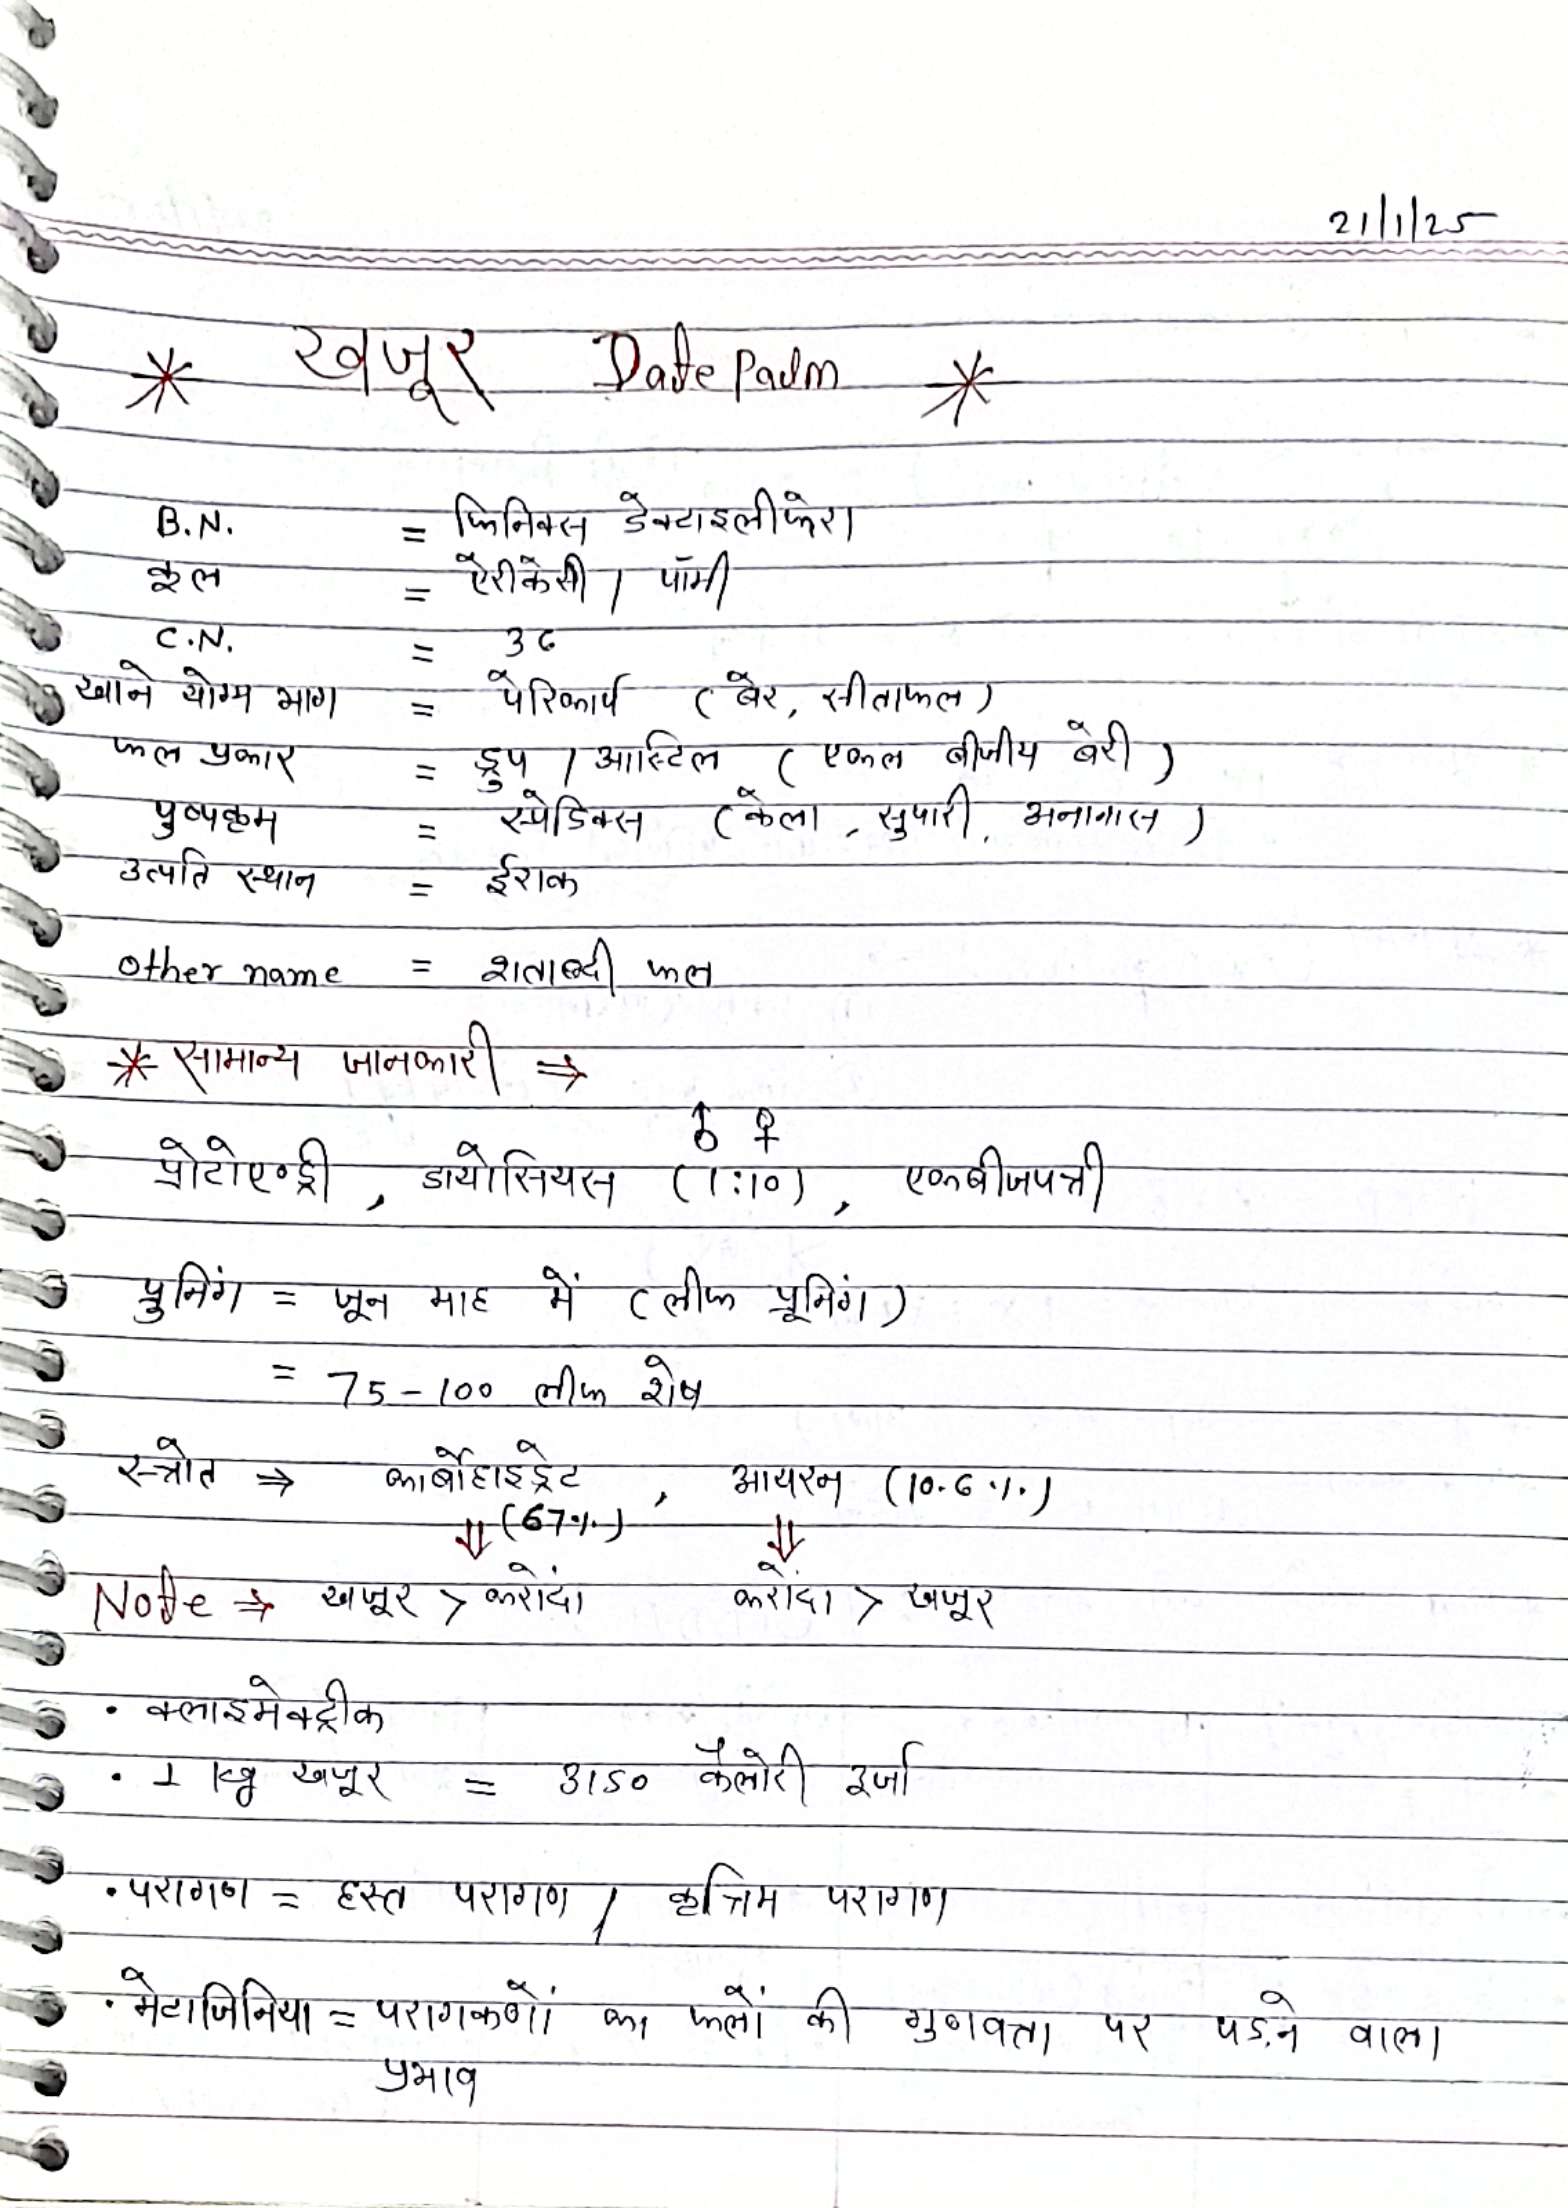 21/1/25
* खजूर Date Palm *
B.N. = फिनिक्स डेक्टाइलीफेरा
कूल = ऐरीकेसी / पॉमी
C.N. = 36
खाने योग्य भाग = पेरिकार्प (बेर, सीताफल)
फल प्रकार = ड्रुप / आस्टिल (एकल बीजीय बेरी)
पुष्पक्रम = स्पेडिक्स (केला, सुपारी, अनानास)
उत्पति स्थान = ईराक
Other name = शताब्दी फल
* सामान्य जानकारी ⇒
♂ ♀
प्रोटोएण्ड्री, डायोसियस (1:10), एकबीजपत्री
प्रुनिंग = जून माह में (लीफ प्रूनिंग)
= 75-100 लीफ शेष
स्त्रोत ⇒ कार्बोहाइड्रेट, आयरन (10.6%)
⇓ (67%) ⇓
Note ⇒ खजूर > करोंदा करोंदा > खजूर
• क्लाइमेक्ट्रीक
• 1 kg खजूर = 3150 कैलोरी उर्जा
• परागण = हस्त परागण / कृत्रिम परागण
• मेटाजिनिया = परागकणों का फलों की गुणवत्ता पर पड़ने वाला
प्रभाव